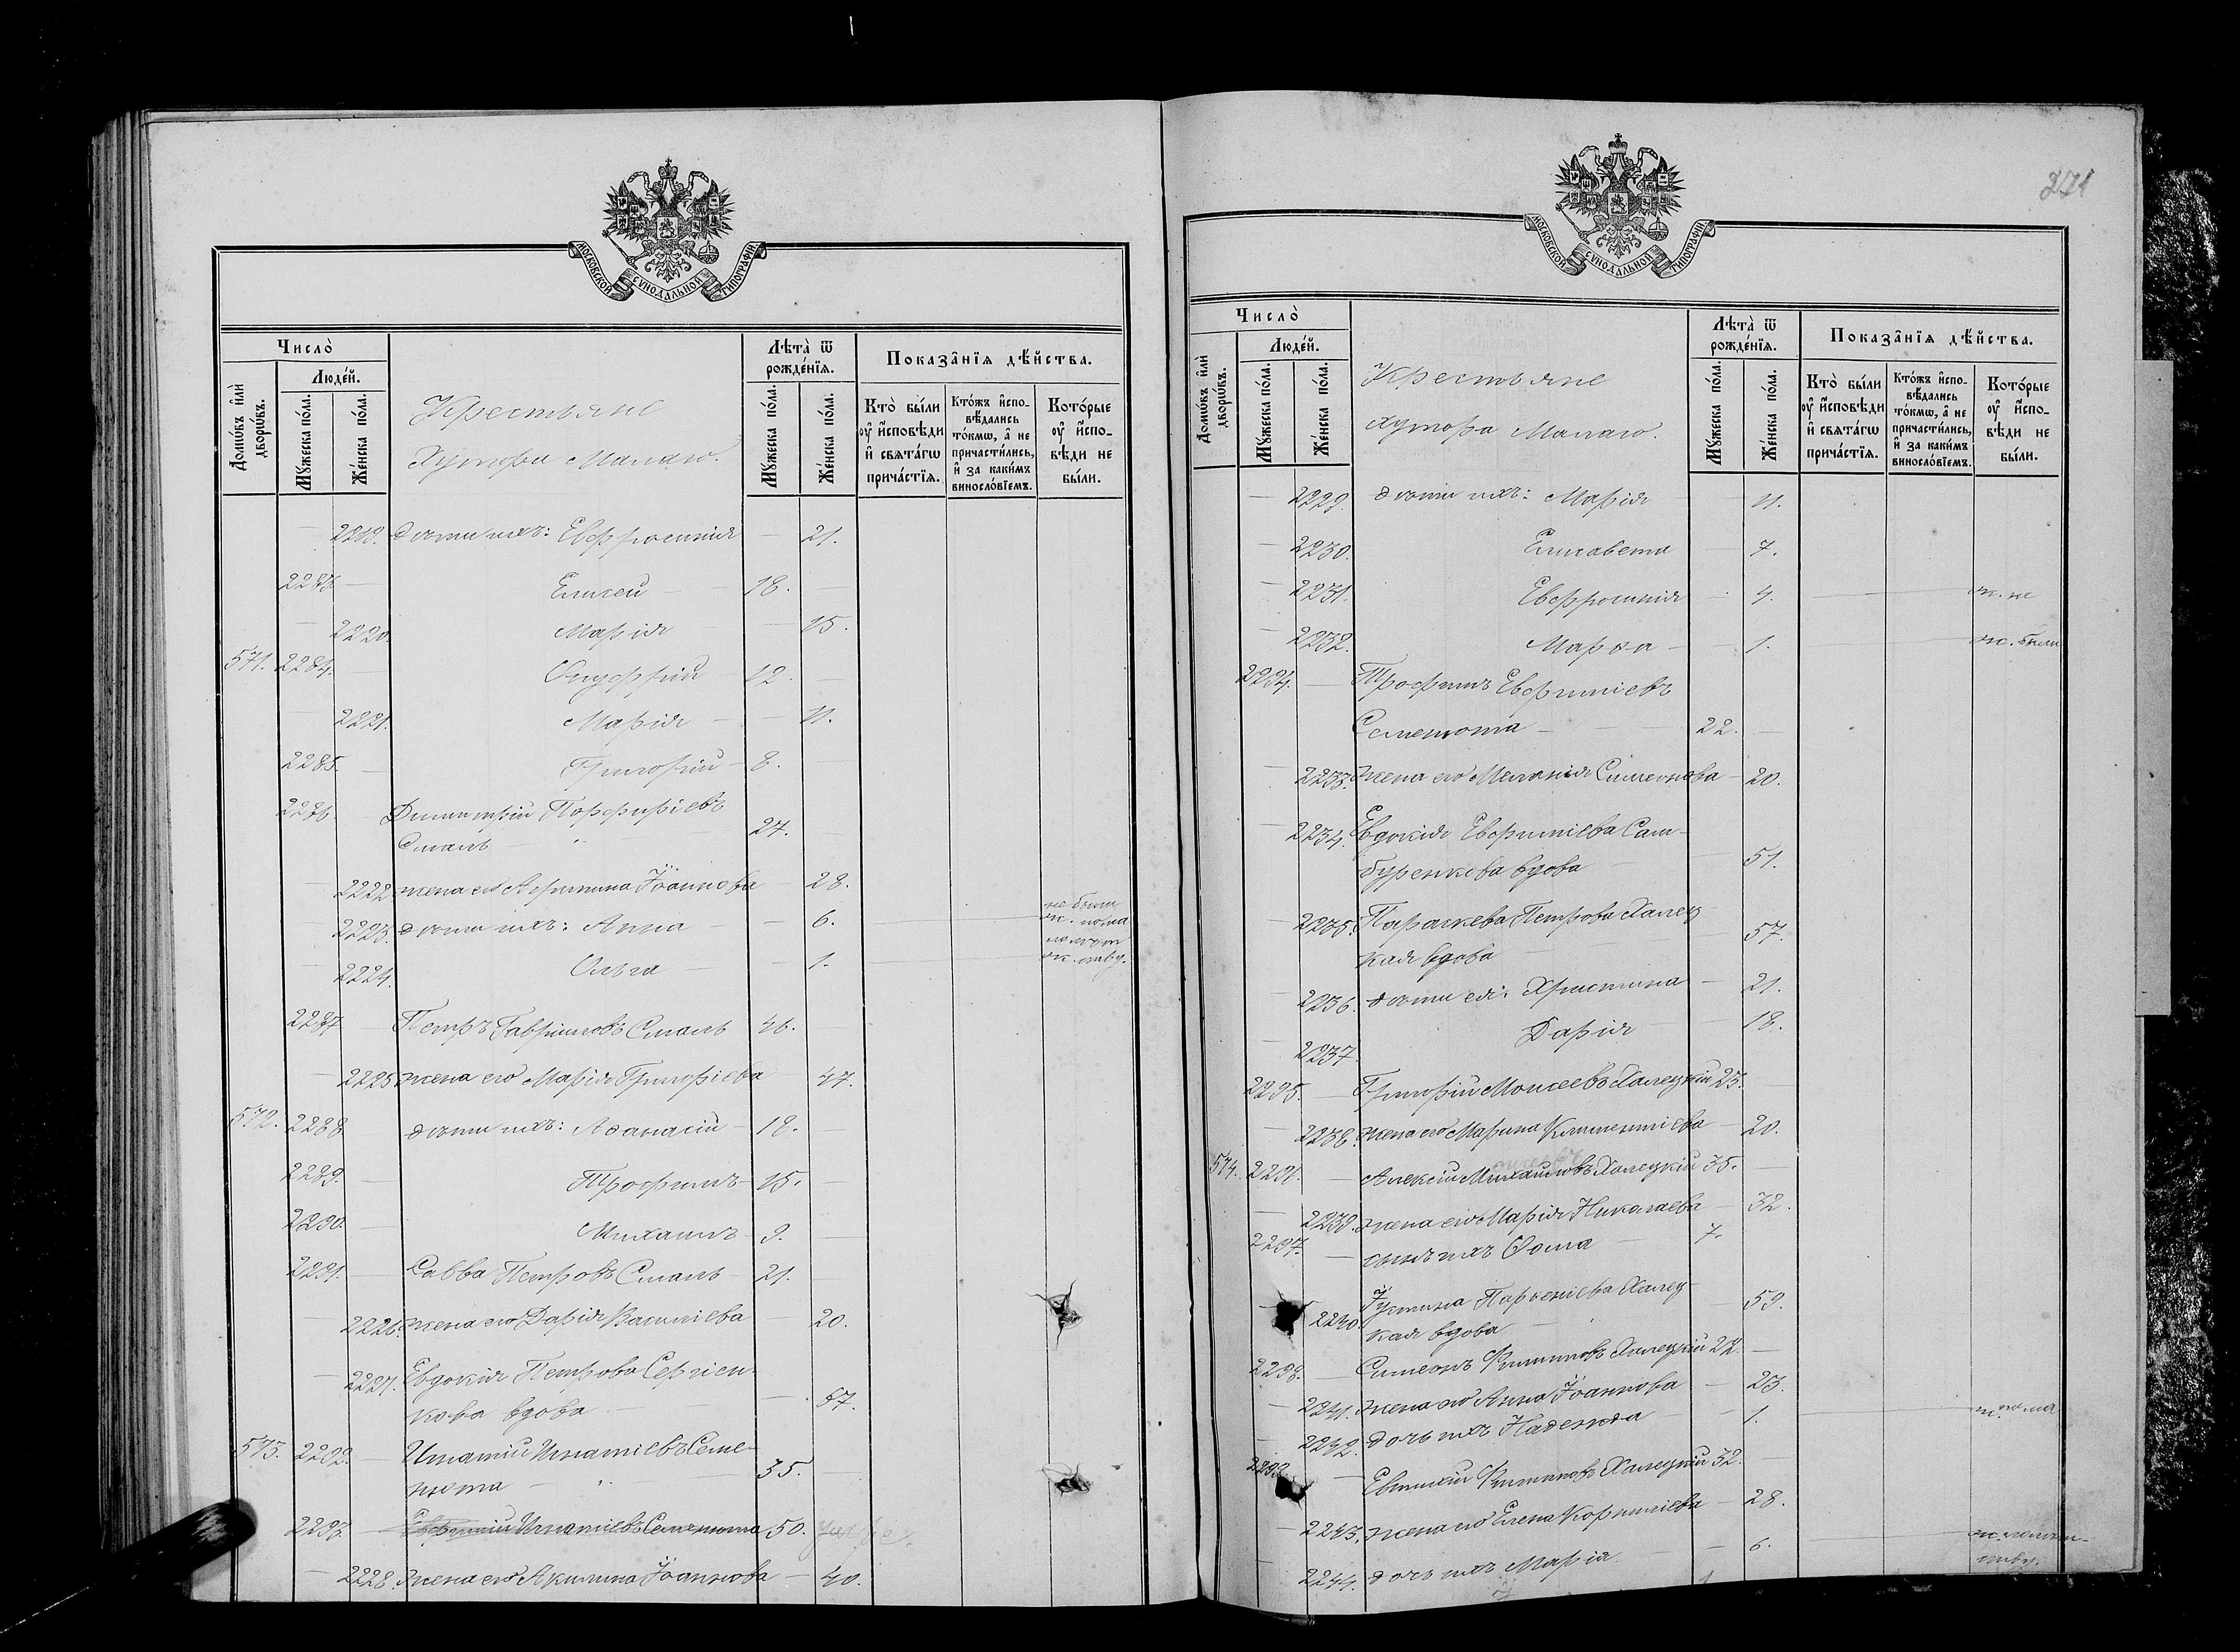 271
МОСКОВСКОЙ СѴНОДАЛЬНОЙ ТИПОГРАФІИ
Число̀
Домѡ́въ и҆лѝ дворѡ́въ.
Люде́й.
Мꙋ́жеска по́ла.
Же́нска по́ла.
Крестьяне
Хутора Малаго.
Лѣта̀ ѿ рожде́нїѧ.
Мꙋ́жеска по́ла.
Же́нска по́ла.
Показа̑нїѧ дѣ́йства.
Кто̀ бы́ли ᲂу҆ и҆сповѣ́ди и҆ свѧта́гѡ прича́стїѧ.
Кто́жъ и҆сповѣ́дались то́кмѡ, а҆ не причасти́лись, и҆ за каки́мъ виносло́вїемъ.
Кото́рые ᲂу҆ и҆сповѣ́ди не бы́ли.
2219. дѣти ихъ: Евфросинія — 21.
2283. — Елисей — 18. —
2220 Марія — 15.
571. 2284. — Онуфрій — 12.
2221. Марія — 11.
2285. — Григорій — 8.
2286. Димитрій Порфиріевъ
Смаль — 27.
2222 жена его Агрипина Іоаннова — 28.
2223. дѣти ихъ: Анна — 6. не были
2224. Ольга — 1.
2287 — Петръ Гавриловъ Смаль 46.
2225 жена его Марія Григоріева — 47.
572. 2288 дѣти ихъ: Аѳанасій — 18.
2289. — Трофимъ — 15.
2290. — Михаилъ — 9.
2291. — Савва Петровъ Смаль — 21.
2226. жена его Дарія Василіева — 20.
2227. Евдокія Петрова Сергіен-
кова вдова — 67.
573. 2292. — Игнатій Игнатіевъ Семе-
нюта — 35.
2293. Евфимій Игнатіевъ Семенюта 50. умре.
2228. жена его Акилина Іоаннова — 40.
МОСКОВСКОЙ СѴНОДАЛЬНОЙ ТИПОГРАФІИ
Число̀
Домѡ́въ и҆лѝ дворѡ́въ.
Люде́й.
Мꙋ́жеска по́ла.
Же́нска по́ла.
Крестьяне
хутора Малаго.
Лѣта̀ ѿ рожде́нїѧ.
Мꙋ́жеска по́ла.
Же́нска по́ла.
Показа̑нїѧ дѣ́йства.
Кто̀ бы́ли ᲂу҆ и҆сповѣ́ди и҆ свѧта́гѡ прича́стїѧ.
Кто́жъ и҆сповѣ́дались то́кмѡ, а҆ не причасти́лись, и҆ за каки́мъ виносло́вїемъ.
Кото́рые ᲂу҆ и҆сповѣ́ди не бы́ли.
— 2229. дѣти ихъ: Марія 11.
— 2230. Елисавета — 7.
— 2231. Евфросинія 4. не
— 2232. Марѳа — 1. были
2294. — Трофимъ Евфиміевъ
Семенюта — 22. —
— 2233. жена его Меланія Симеонова — 20.
— 2234. Евдокія Евфиміева Сам-
буренкова вдова — 51.
— 2235. Параскева Петрова Халец-
кая вдова — 57.
— 2236. дѣти ея: Христина — 21.
— 2237. Дарія — 18.
2295. — Григорій Моисеевъ Халецкій 23. —
— 2238. жена его Марина Климентіева — 20.
574. 229. — Алексій Михаиловъ Халецкій 35. —
— 2239. жена его Марія Николаева — 32.
2297. — сынъ ихъ Ѳома — 7.
2240. Іустина Парѳеніева Халец-
кая вдова — 59.
2298. — Симеонъ Филиповъ Халецкій —
— 2241. жена его Анна Іоаннова — 23.
— 2242. дочь ихъ Надежда — 1.
2299. — Евтихій Филиповъ Халецкій 32. —
2243. жена его Елена Корниліева — 28.
— 2244. дочь ихъ Марія — 6.